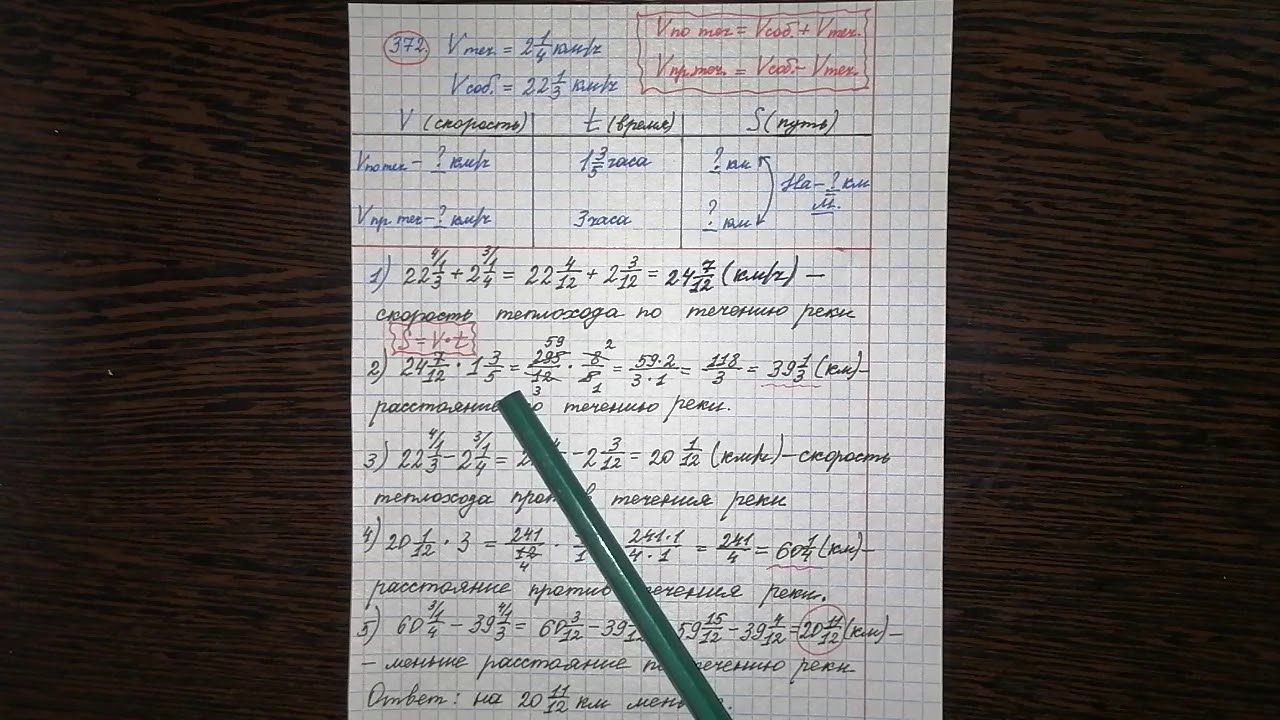 372. Vтеч. = 2 1/4 км/ч
Vсоб. = 22 1/3 км/ч
Vпо теч = Vсоб. + Vтеч.
Vпр.теч. = Vсоб. - Vтеч.
V (скорость) t (время) S (путь)
Vпо теч - ? км/ч 1 3/5 часа ? км
На - ? км
м.
Vпр теч - ? км/ч 3 часа ? км
1) 22 1/3 + 2 1/4 = 22 4/12 + 2 3/12 = 24 7/12 (км/ч) —
скорость теплохода по течению реки
S = V · t
2) 24 7/12 · 1 3/5 = 295/12 · 8/5 = 59·2/3·1 = 118/3 = 39 1/3 (км) —
расстояние течению реки.
3) 22 1/3 - 2 1/4 = - 2 3/12 = 20 1/12 (км/ч) — скорость
теплохода течения реки
4) 20 1/12 · 3 = 241/12 · 241·1/4·1 = 241/4 = 60 1/4 (км) —
расстояние против течения реки.
5) 60 1/4 - 39 1/3 = 60 3/12 - 39 59 15/12 - 39 4/12 = 20 11/12 (км) —
- меньше расстояние течению реки
Ответ: на 20 11/12 км